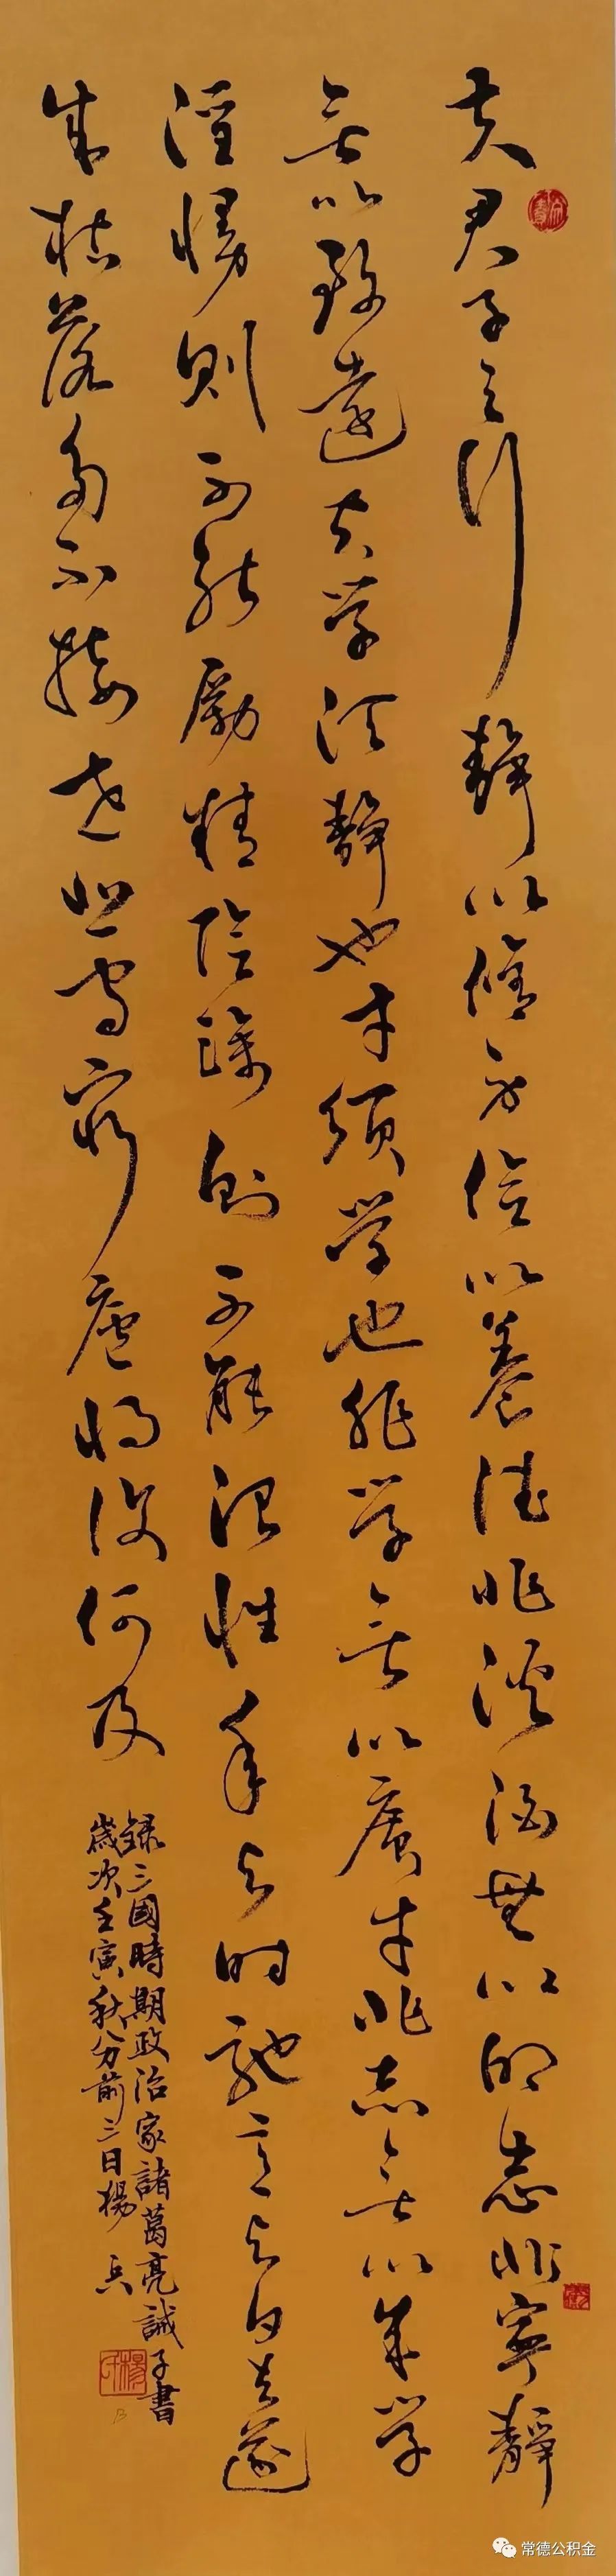 夫君子之行靜以修身儉以養德非淡泊無以明志非寧靜
無以致遠夫学須靜也才須学也非学無以廣才非志無以成学
淫慢則不能勵精險躁則不能治性年與時馳意與日去遂
成枯落多不接世悲守窮廬將復何及
錄三國時期政治家諸葛亮誡子書
歲次壬寅秋分前三日楊兵
常德公积金